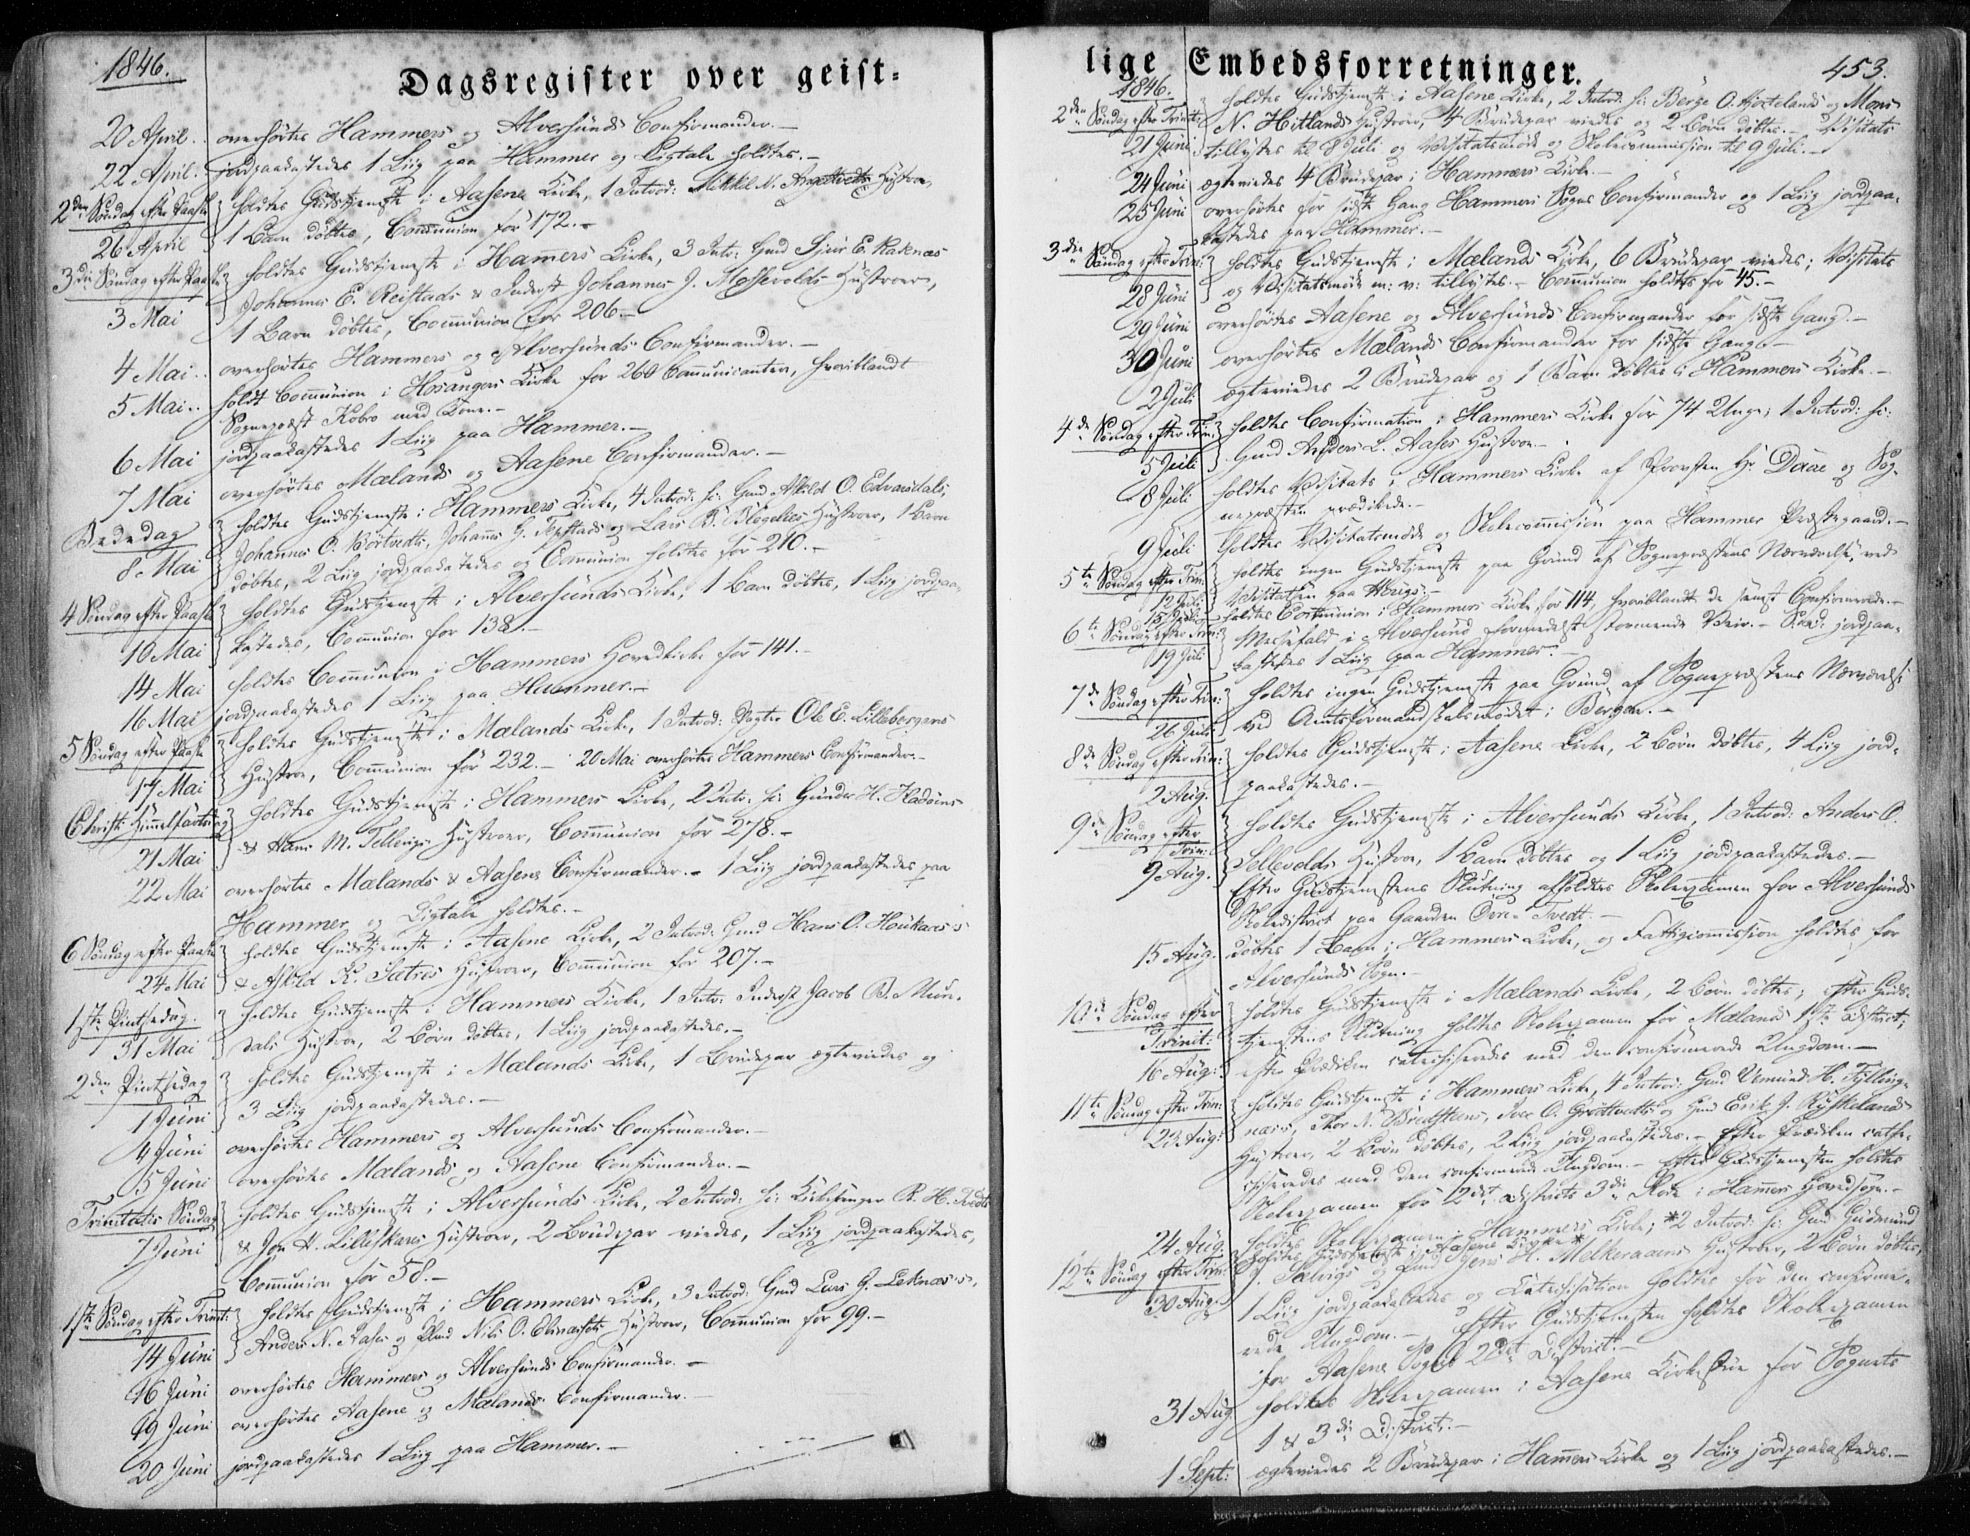 1846.
Dagsregister over geist-
20 April. overhørtes Hammers og Alversunds Confirmander.—
22 April. jordpaakastedes 1 Liig paa Hammer og Ligtale holdtes.—
2den Søndag efter Paaske holdtes Gudstjeneste i Aasene Kirke, 1 Introd: Mikkel N. Hustroe,
26 April 1 Barn døbtes, Communion for 172.—
3die Søndag efter Paaske holdtes Gudstjeneste i Hamers Kirke, 3 Intr: Gmd Sjur E. Kadenæs
3 Mai Johannes E. Reistads & Inderst Johannes J. Mossevolds Hustroer,
1 Barn døbtes, Communion for 206.—
4 Mai.. overhørtes Hammers og Alversunds Confirmander.—
5 Mai.. holdt Communion i Hosangers Kirke for 260 Communicanter, hvoriblandt
Sognepræst Kobro med Kone.—
6 Mai jordpaakastedes 1 Liig paa Hammer.—
7 Mai overhørtes Mælands og Aasene Confirmander.—
Bededag holdtes Gudstjeneste i Hammers Kirke, 4 Introd: h: Gmd Askild O. Edvarsdals,
8 Mai Johannes O. Børtvedts, Johans G. Tepstads og Lars B. Hustroer, 1 Barn
døbtes, 2 Liig jordpaakastedes og Communion holdtes for 210.—
4 Søndag efter Paaske holdtes Gudstjeneste i Alversunds Kirke, 1 Barn døbtes, 1 Liig jordpaa-
10 Mai kastedes, Communion for 138.—
14 Mai holdtes Communion i Hammers Hovedkirke for 141.—
16 Mai jordpaakastedes 1 Liig paa Hammer.—
5 Søndag efter Paaske holdtes Gudstjeneste i Mælands Kirke, 1 Introd: Ole E. Lillebergens
17 Mai Hustroe, Communion for 232.— 20 Mai overhørtes Hammers Confirmander.—
Christi Himmelfartsdag holdtes Gudstjeneste i Hammers Kirke, 2 Intr: h: Gunder H. Fladøens
21 Mai & Hans M. Tellevigs Hustroer, Communion for 278.—
22 Mai overhørtes Mælands & Aasene Confirmander.— 1 Liig jordpaakastedes paa
Hammer og Ligtale holdtes.—
6 Søndag efter Paaske holdtes Gudstjeneste i Aasene Kirke, 2 Introd: Gmd Hans O. Houkaas's
24 Mai & Askild K. Sætres Hustroer, Communion for 207.—
1ste Pintsedag. holdtes Gudstjeneste i Hammers Kirke, 1 Intr: Inderst Jacob B. Mun-
31 Mai dals Hustroe, 2 Børn døbtes, 1 Liig jordpaakastedes.—
2den Pintsedag holdtes Gudstjeneste i Mælands Kirke, 1 Brudepar ægteviedes og
1 Juni 3 Liig jordpaakastedes.—
4 Juni overhørtes Hammers og Alversunds Confirmander.—
5 Juni overhørtes Mælands og Aasene Confirmander.—
Trinitatis Søndag holdtes Gudstjeneste i Alversunds Kirke, 2 Introd: h: Kirkesanger R. H. Tvedts
7 Juni & Jon H. Lilleskares Hustroer, 2 Brudepar viedes, 1 Liig jordpaakastedes,
Communion for 58.—
1ste Søndag efter Trinit: holdtes Gudstjeneste i Hammers Kirke, 3 Introd: Gmd Lars J. Leknæs's,
14 Juni Anders N. Aases og Nils O. Hustroer, Communion for 99.—
16 Juni overhørtes Hammers og Alversunds Confirmander.—
19 Juni overhørtes Aasene og Mælands Confirmander.—
20 Juni jordpaakastedes 1 Liig paa Hammer.—
lige Embedsforretninger. 453.
1846.
2den Søndag efter Trinit: holdtes Gudstjeneste i Aasene Kirke, 2 Introd: h: Berge O. Hjortelands og Mons
21 Juni N. Hitlands Hustroer, 4 Brudepar viedes og 2 Børn døbtes.— Visitats
tillystes til 8 Juli og Visitatsmøde og Skolecommission til 9 Juli.—
24 Juni ægteviedes 4 Brudepar i Hammers Kirke.—
25 Juni overhørtes for sidste Gang Hammers Sogns Confirmander og 1 Liig jordpaa-
kastedes paa Hammer.—
3die Søndag efter Trin: holdtes Gudstjeneste i Mælands Kirke, 6 Brudepar viedes; Visitats
28 Juni og Visitatsmøde m: v: tillystes.— Communion holdtes for 45.—
29 Juni overhørtes Aasene og Alversunds Confirmander for sidste Gang.—
30 Juni overhørtes Mælands Confirmander for sidste Gang.—
2 Juli ægteviedes 2 Brudepar og 1 Barn døbtes i Hammers Kirke.—
4de Søndag efter Trin: holdtes Confirmation i Hammers Kirke for 74 Unge; 1 Introd: h:
5 Juli Gmd Anders L. Aases Hustroe.—
8 Juli holdtes Visitats i Hammers Kirke af Provsten Hr Daae og Sog-
nepræsten prædikede.—
9 Juli holdtes Visitatsmøde og Skolecommission paa Hammer Præstegaard.—
5te Søndag eft: Trin: holdtes ingen Gudstjeneste paa Grund af Sognepræstens Nærværelse ved
12 Juli Visitatsen paa Herigs.—
15 Juli holdtes Communion i Hammers Kirke for 114, hvoriblandt de sidst Confirmerede.—
6te Søndag efter Trin: Messefald i Alversund formedelst stormende Veir.— jordpaa-
19 Juli kastedes 1 Liig paa Hammer.—
7de Søndag eft: Trin: holdtes ingen Gudstjeneste paa Grund af Sognepræstens Nærværelse
26 Juli ved Amtsformandskabsmødet i Bergen.—
8de Søndag efter Trin: holdtes Gudstjeneste i Aasene Kirke, 2 Børn døbtes, 4 Liig jord-
2 Aug. paakastedes.—
9de Søndag efter Trin: holdtes Gudstjeneste i Alversunds Kirke, 1 Introd: Anders O.
9 Aug. Sellevolds Hustroe, 1 Barn døbtes og 1 Liig jordpaakastedes.—
Efter Gudstjenestens Slutning afholdtes Skoleexamen for Alversunds
Skoledistrict paa Gaarden Øvre Tvedt.—
15 Aug. døbtes 1 Barn i Hammers Kirke, og Fattigcommission holdtes for
Alversunds Sogn.—
10de Søndag efter holdtes Gudstjeneste i Mælands Kirke, 2 Børn døbtes; efter Guds-
Trinit: tjenestens Slutning holdtes Skoleexamen for Mælands 1ste District;
16 Aug: efter Prædiken catechiseredes med den confirmerede Ungdom.—
11te Søndag efter Trin: holdtes Gudstjeneste i Hammers Kirke, 4 Introd: Gmd Vemund H. Fylling-
23 Aug: næs's, Thor N. Bredsteens, Iver O. Grøttvedts og Gmd Erik J. Ryskelands
Hustroer, 2 Børn døbtes, 2 Liig jordpaakastedes.— Efter Prædiken cathe-
chiseredes med den confirmerede Ungdom.— Efter Gudstjenesten holdtes
Skoleexamen for 2det Districts 3die Rode i Hamers Hovedsogn.—
24 Aug. holdtes Skoleexamen i Hammers Kirke; *2 Introd: h: Gmd Gudmund
12te Søndag efter Trin: holdtes Gudstjeneste i Aasene Kirke*
30 Aug: J. Sælvigs og Gmd H. Melkeraaens Hustroer, 2 Børn døbtes,
1 Liig jordpaakastedes og Catechisation holdtes for den confirme-
rede Ungdom.— Efter Gudstjenesten holdtes Skoleexamen
for Aasene Sogns 2det District.—
31 Aug. holdtes Skoleexamen i Aasene Kirkestue for Sognets
1 & 3die District.—
1 Sept: ægteviedes 2 Brudepar i Hamers Kirke og 1 Liig jordpaakastedes.—